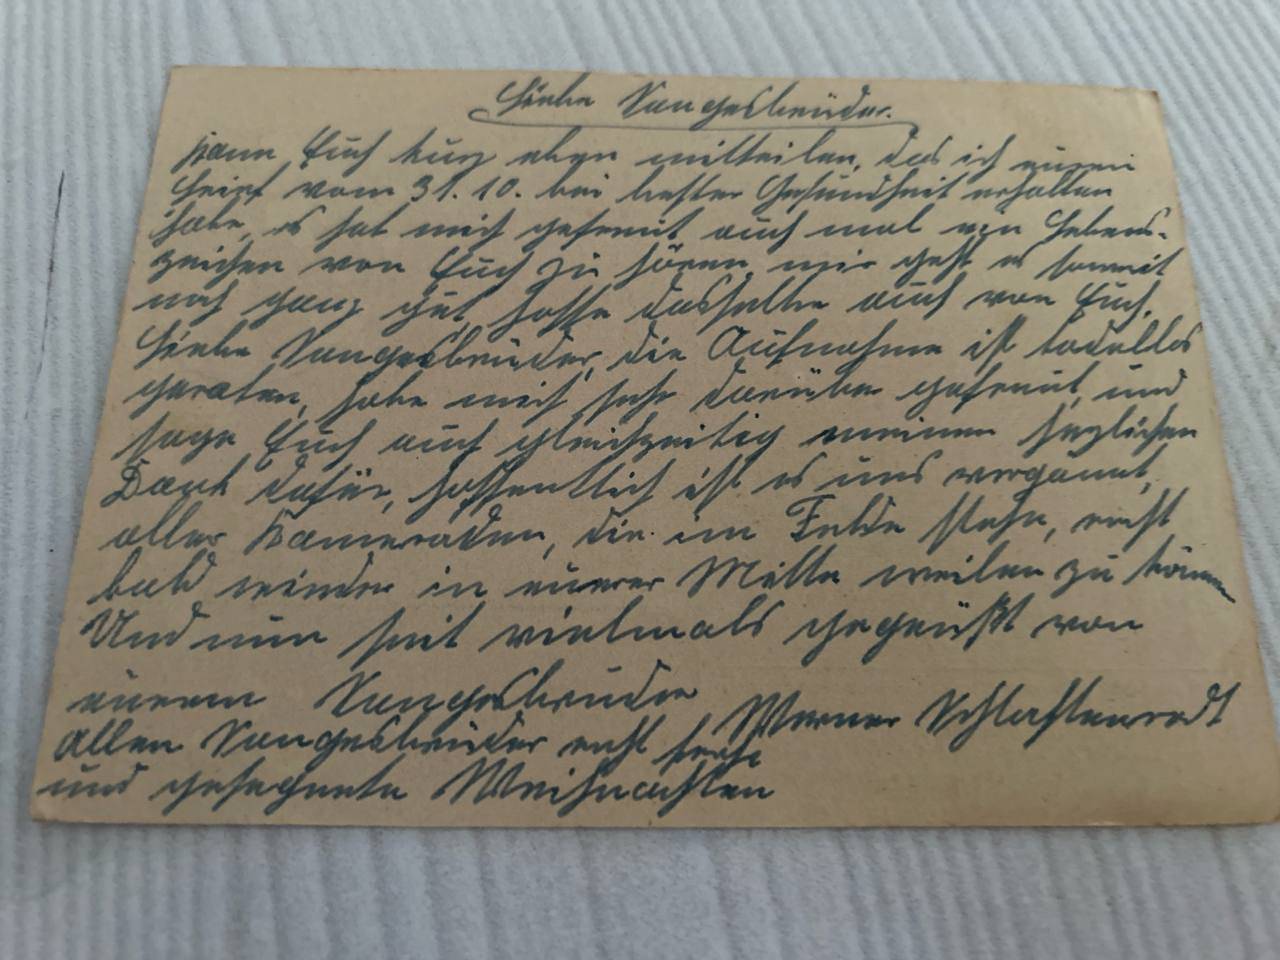 Liebe Sangesbrüder.
kann Euch kurz eben mitteilen, das ich euren
Brief vom 31.10. bei bester Gesundheit erhalten
habe, es hat mich gefreut auch mal ein Lebens-
zeichen von Euch zu hören, mir geht es soweit
noch ganz gut hoffe dasselbe auch von Euch.
Liebe Sangesbrüder, die Aufnahme ist tadellos
geraten, habe mich sehr darüber gefreut, und
sage Euch auch gleichzeitig meinen herzlichen
Dank dafür, hoffentlich ist es uns vergönnt,
aller Kameraden, die im Felde stehn, recht
bald wieder in eurer Mitte weilen zu können
Und nun seit vielmals gegrüßt von
eurem Sangesbruder
Werner
allen Sangesbrüder recht frohe
und gesegnete Weihnachten